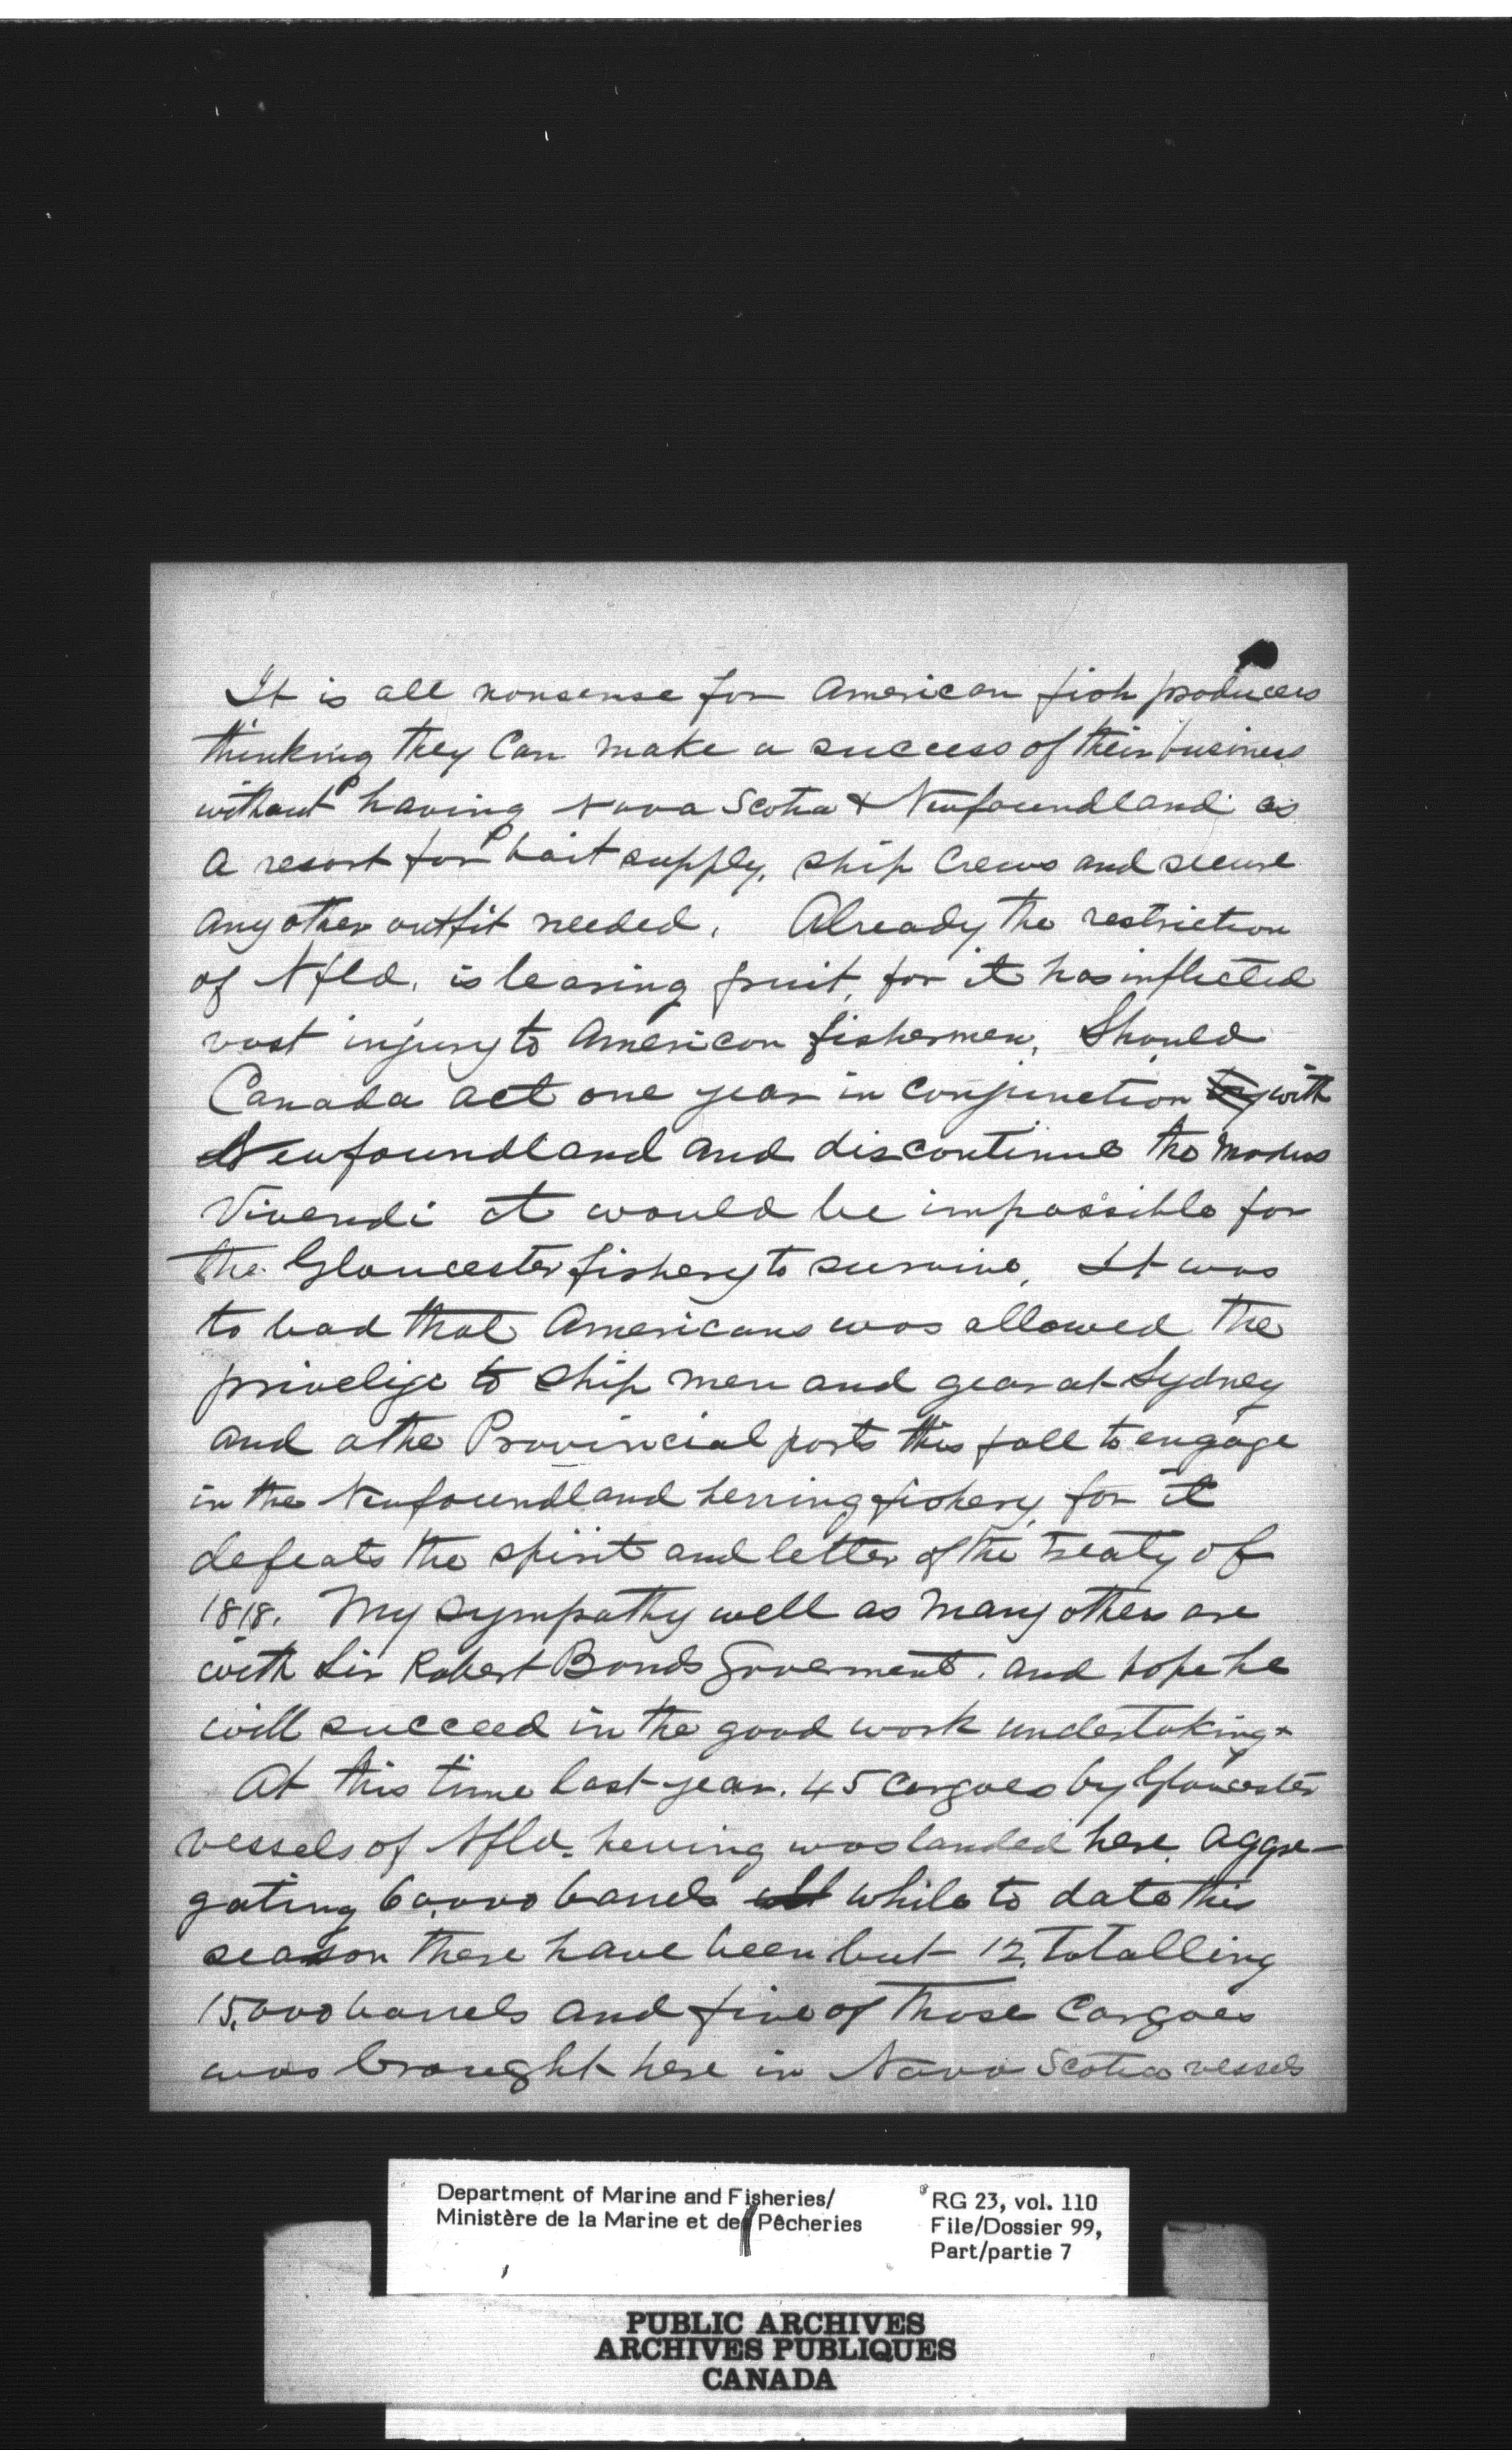 It is all nonsense for American fish producers
thinking they can make a success of their business
without having Nova Scotia & Newfoundland as
a resort for bait supply, ship crews and secure
any other outfit needed. Already the restriction
of Nfld. is bearing fruit, for it has inflicted
vast injury to American fishermen, Should
Canada act one year in conjunction by with
Newfoundland and discontinue the Modus
Vivendi it would be impossible for
the Gloucester fishery to survive, It was
to bad that Americans was allowed the
privelige to ship men and gear at Sydney
and othe Provincial ports this fall to engage
in the Newfoundland herring fishery, for it
defeats the spirit and letter of the treaty of
1818. My sympathy well as many others are
with Sir Robert Bonds Goverment. and hope he
will succeed in the good work undertaking.
At this time last year. 45 cargoes by Gloucester
vessels of Nfld. herring was landed here aggre-
gating 60,000 barrels while to date this
season there have been but 12, totalling
15,000 barrels and five of those cargoes
was brought here in Nova Scotia vessels
Department of Marine and Fisheries/
Ministère de la Marine et des Pêcheries
RG 23, vol. 110
File/Dossier 99,
Part/partie 7
PUBLIC ARCHIVES
ARCHIVES PUBLIQUES
CANADA